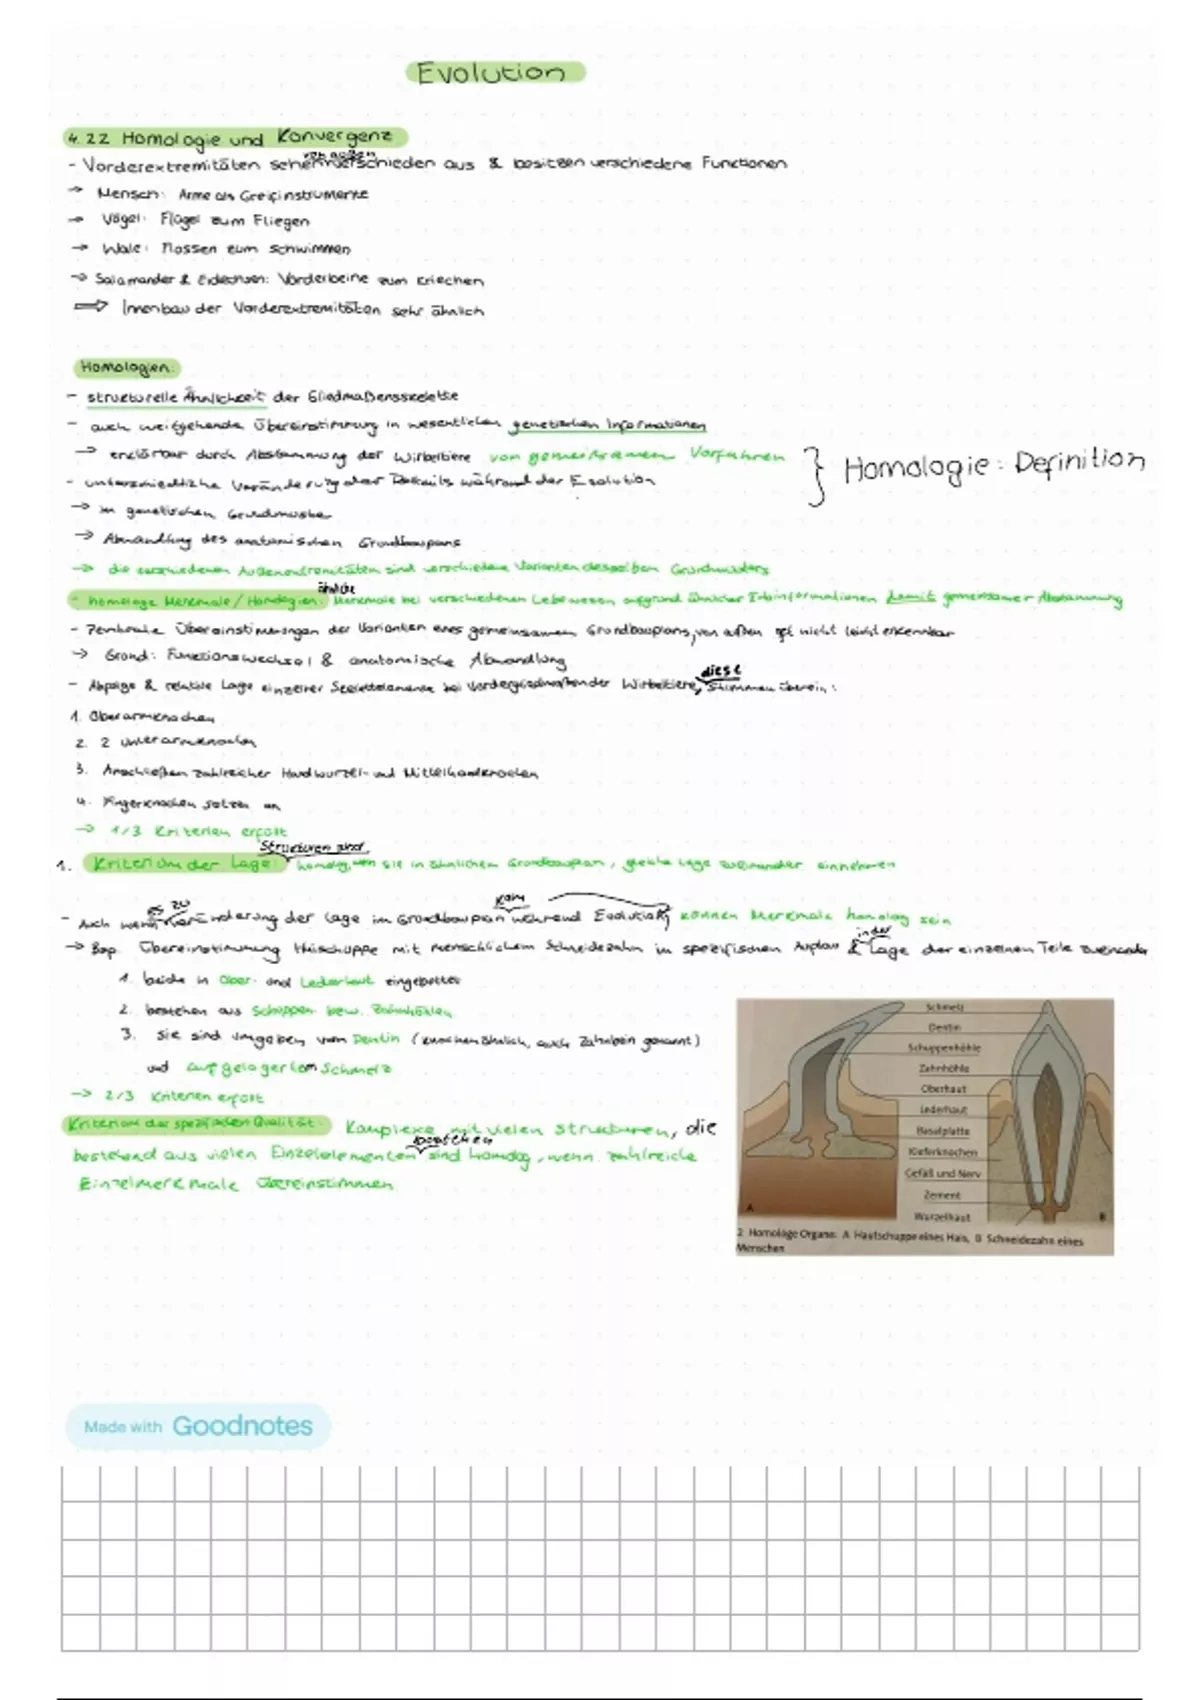 Evolution
4.22 Homologie und Konvergenz
von außen
- Vorderextremitäten sehen verschieden aus & besitzen verschiedene Funktionen
→ Mensch: Arme als Greifinstrumente
→ Vögel: Flügel zum Fliegen
→ Wale: Flossen zum schwimmen
→ Salamander & Eidechsen: Vorderbeine zum kriechen
⇒ Innenbau der Vorderextremitäten sehr ähnlich
Homologien:
- strukturelle Ähnlichkeit der Gliedmaßensskelette
- auch weitgehende Übereinstimmung in wesentlichen genetischen Informationen
→ erklärbar durch Abstammung der Wirbeltiere von gemeinsamen Vorfahren
} Homologie: Definition
- unterschiedliche Veränderung der Details während der Evolution
→ im genetischen Grundmuster
→ Abwandlung des anatomischen Grundbauplans
→ die verschiedenen Außenextremitäten sind verschiedene Varianten desselben Grundmusters
ähnliche
- homologe Merkmale/Homologien: Merkmale bei verschiedenen Lebewesen aufgrund ähnlicher Erbinformationen damit gemeinsamer Abstammung
- Übereinstimmungen der Varianten eines gemeinsamen Grundbauplans, von außen oft nicht leicht erkennbar
→ Grund: Funktionswechsel & anatomische Abwandlung
diese
- Abfolge & relative Lage einzelner Skelettelemente bei Vordergliedmaßen der Wirbeltiere, stimmen überein:
1. Oberarmknochen
2. 2 Unterarmknochen
3. Anschließen zahlreicher Handwurzel- und Mittelhandknochen
4. Fingerknochen setzen an
→ 1/3 Kriterien erfüllt
Strukturen sind
1. Kriterium der Lage: homolog, wenn sie in ähnlichem Grundbauplan, gleiche Lage zueinander einnehmen
es zu kam
- Auch wenn Veränderung der Lage im Grundbauplan während Evolution, können Merkmale homolog sein
in der
→ Bsp. Übereinstimmung Haischuppe mit menschlichem Schneidezahn im spezifischen Aufbau & Lage der einzelnen Teile zueinander
1. beide in Ober- und Lederhaut eingebettet
2. bestehen aus Schuppen- bzw. Zahnhöhlen
3. Sie sind umgeben vom Dentin (knochenähnlich, auch Zahnbein genannt)
und aufgelagertem Schmelz
→ 2/3 Kriterien erfüllt
Kriterium der spezifischen Qualität: Komplexe mit vielen Strukturen, die
bestehen
bestehend aus vielen Einzelelementen sind homolog, wenn zahlreiche
Einzelmerkmale übereinstimmen
Schmelz
Dentin
Schuppenhöhle
Zahnhöhle
Oberhaut
Lederhaut
Basalplatte
Kieferknochen
Gefäß und Nerv
Zement
Wurzelhaut
A
B
2 Homologe Organe. A Hautschuppe eines Hais, B Schneidezahn eines
Menschen
Made with Goodnotes